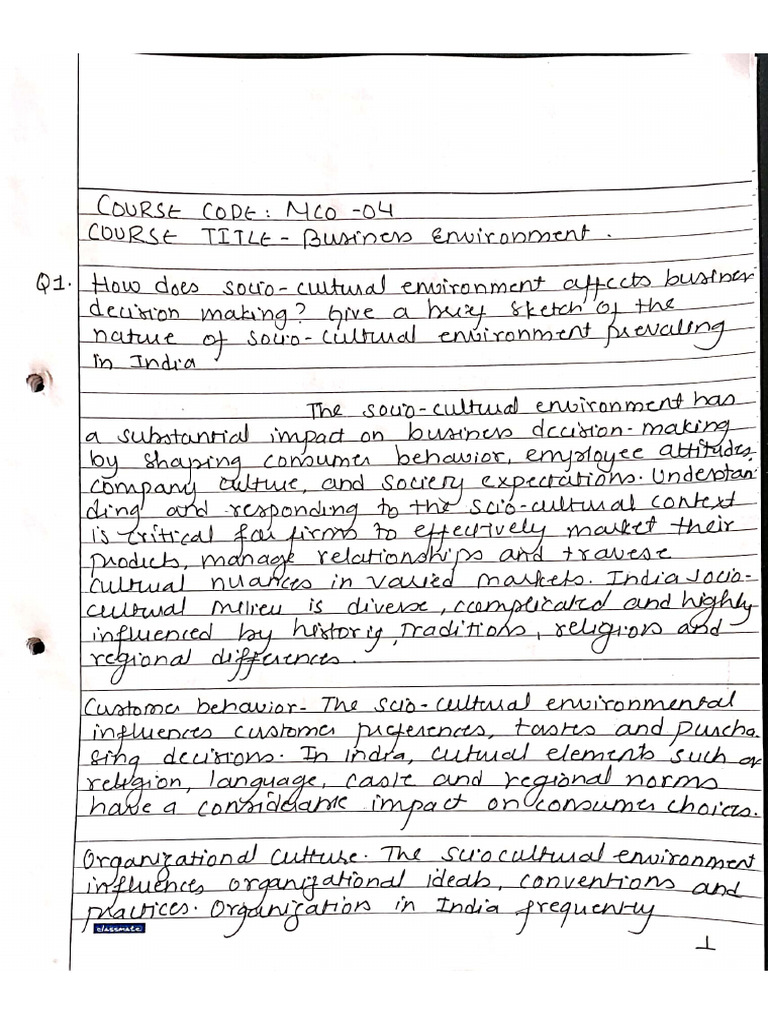 COURSE CODE: MCO -04
COURSE TITLE - Business Environment.
Q1. How does socio-cultural environment affects business
decision making? Give a briey sketch of the
nature of socio-cultural environment prevaling
in India
The socio-cultural environment has
a substantial impact on business decision-making
by shaping consumer behavior, employee attitudes,
company culture, and society expectations. Understan
ding and responding to the scio-cultural context
is critical for firms to effectively market their
products, manage relationships and travese
cultural nuances in varied markets. India socio-
cultural milieu is diverse, complicated and highly
influenced by history, traditions, religions and
regional differences.
Customer behavior- The scio-cultural environmental
influences customer preferences, tastes and purcha
sing decisions. In India, cultural elements such as
religion, language, caste and regional norms
have a considerable impact on consumer choices.
Organizational culture. The sociocultural environment
influences organizational ideals, conventions and
practices. Organization in India frequently
classmate
1